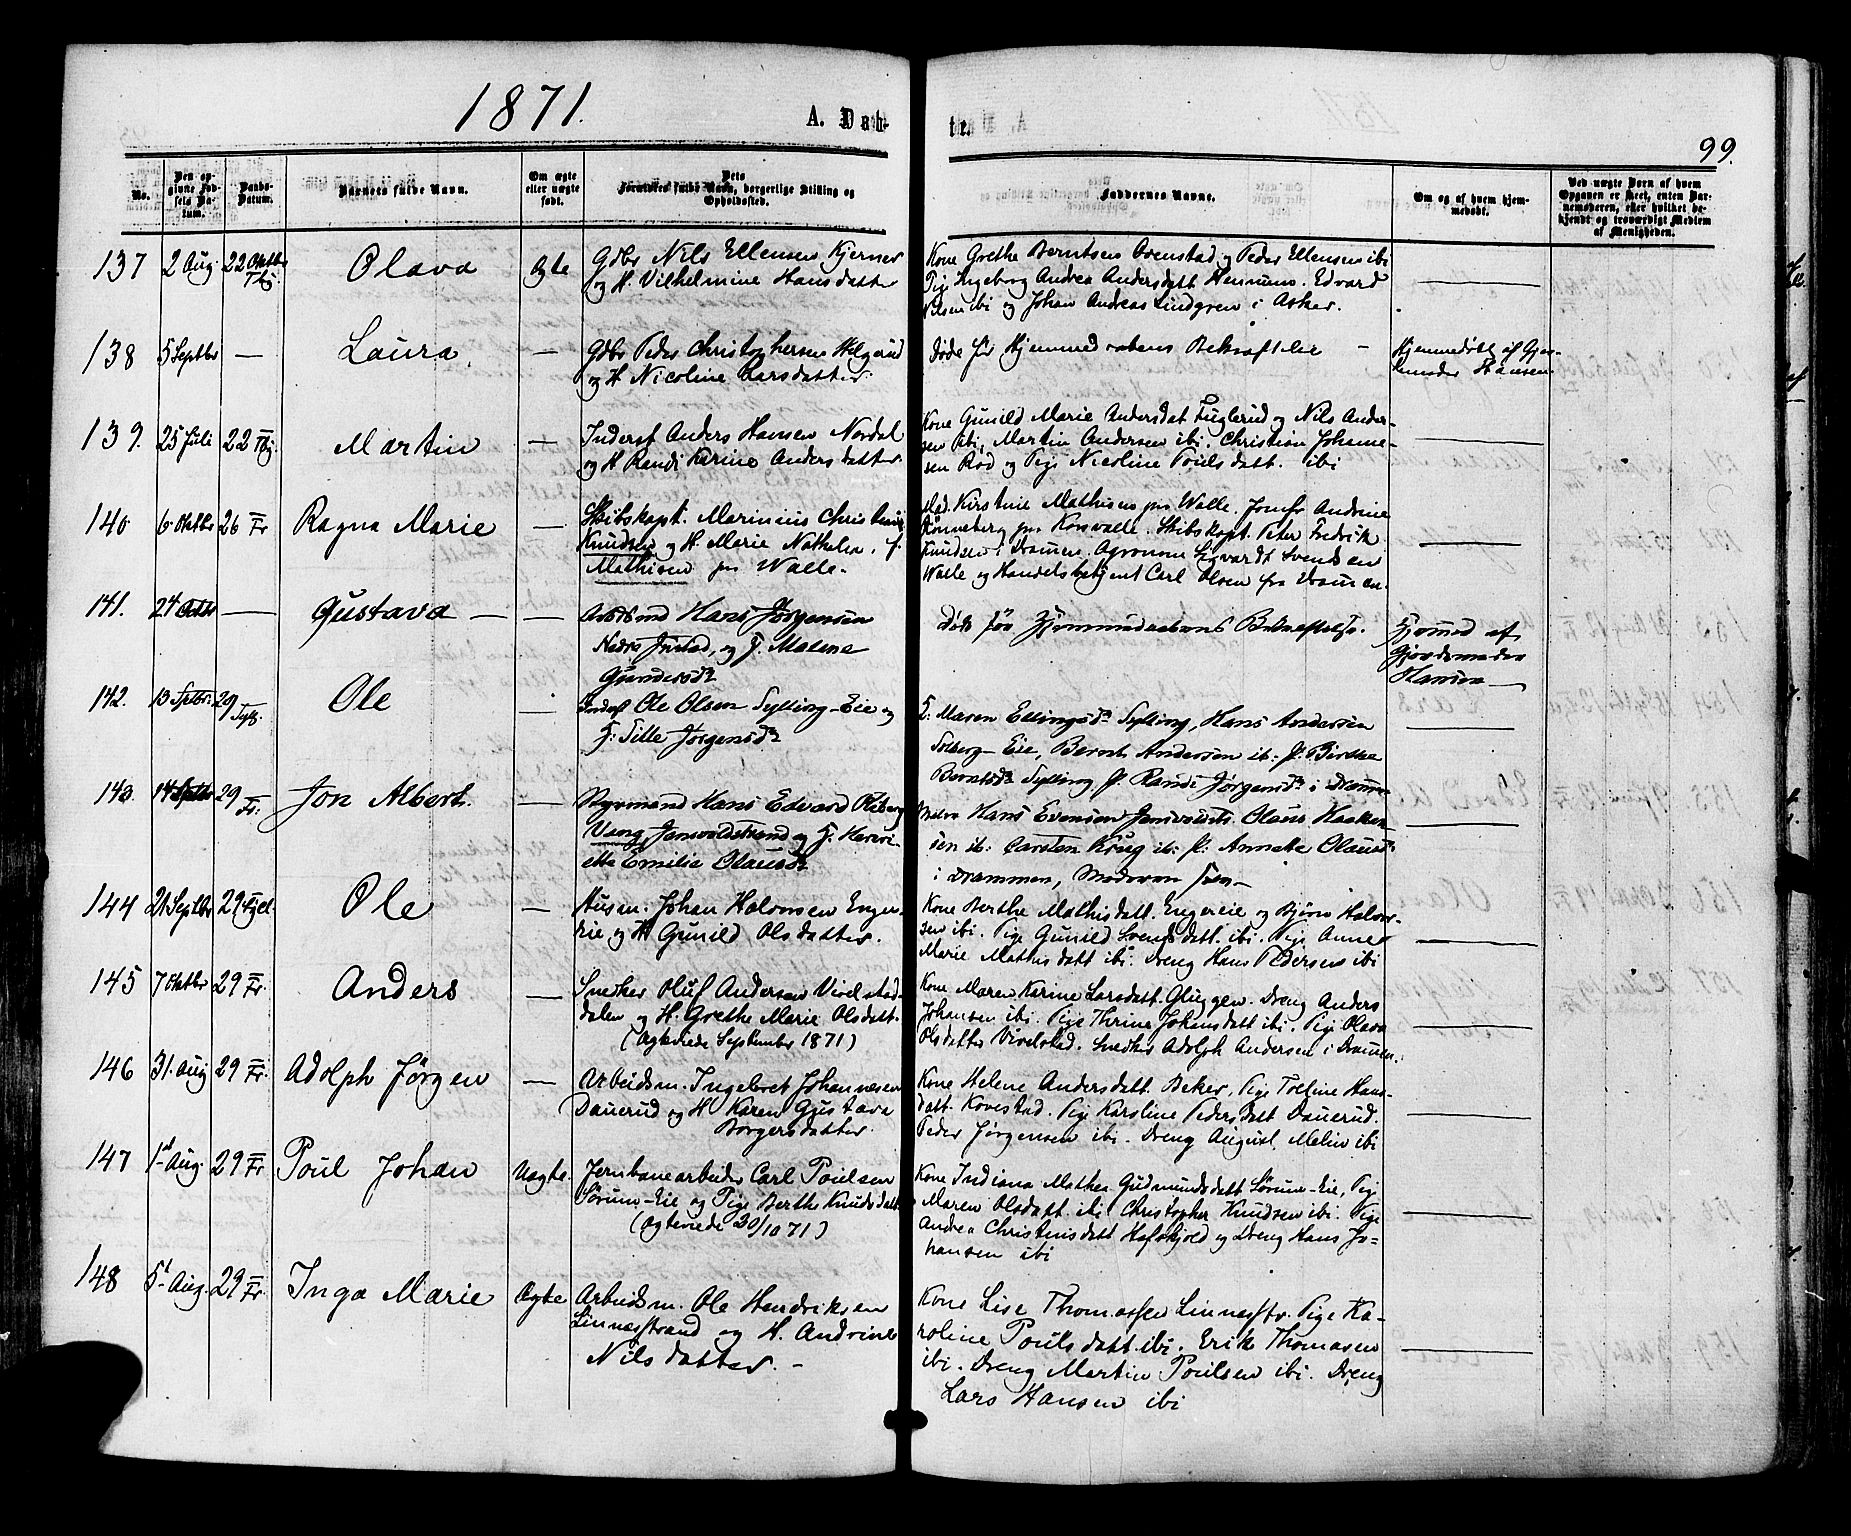 1871.
A. Døb-
te.
99.
No.
Den op-
givne Fød-
sels Da-
tum.
Daabs-
Datum.
Barnets fulde Navn.
Om ægte
eller uægte
født.
Dets
Forældres fulde Navn, borgerlige Stilling og
Opholdssted.
Faddernes Navne.
Om og af hvem hjem-
medøbt.
Ved uægte Børn af hvem
Opgaven er skeet, enten Bar-
nemoderen, eller hvilket be-
kjendt og troværdigt Medlem
af Menigheden.
137 2 Aug 22 Oktbr Olava Ægte Gdbr Nils Ellensen Kjerner
og H. Vilhelmine Hansdatter
Kone Grethe Berntsen Ovenstad og Peder Ellensen ibi
Pige Ingeborg Andrea Andersdatt Hennum. Edvard
Nilsen ibi og Johan Andreas Lindgren i Asker.
138 5 Septbr — Laura. — Gdbr Peder Christophersen Helgerud
og H Nicoline Larsdatter.
Døde før Hjemmedaabens Bekræftelse —
Hjemmedøbt af Gjor-
demoder Hansen
139. 25 Juli 22 Martin — Inderst Anders Hansen Nordal
og H Randi Karine Andersdatter.
Kone Gunild Marie Andersdat Fuglerud og Nils Ander-
sen ibi, Martin Andersen ibi. Christian Johanne-
sen Rød og Pige Nicoline Poulsdatt. ibi
140 6 Oktbr 26 Fr Ragna Marie — Skibskapt. Marinius Christian
Knudsen og H. Marie Nathalia. f.
Mathisen paa Walle.
Mad. Kirstine Mathisen paa Walle. Jomfr Andrine
Rønneberg paa Konvalle. Skibskapt. Peter Fredrik
Knudsen i Dramen. Agronom Sigvardt Svendsen
Walle og Handelsbetjent Carl Olsen fra Dramen.
141. 24 Octbr — Gustava — — Arbdsmd Hans Jørgensen
Nedre Justad, og H. Malene
Gundersdr
Døde før Hjemmedaabens Bekræftelse.
Hjemmed af
Gjordemoder
Hansen —
142. 13 Septbr 29 Sylt. Ole Inderst Ole Olsen Sylling-Eie og
H: Sille Jørgensdr
K: Maren Ellingsdr Sylling, Hans Andersen
Solberg-Eie, Bernt Andersen ib: P. Birthe
Berntsdr Sylling P. Randi Jørgensdr i Dramm.
143. 14 Septbr 29 Fr: Jon Albert. — Styrmand Hans Edvard Riberg
Vang, Jensvoldstrand og H. Henri-
ette Emilie Olausdr
Madro Hans Evensen Jensvoldst. Olaus Haaken-
sen ib: Carsten Krug ib: P. Annette Olausd
i Drammen, Moderen Fra-
144 21 Septbr 29 Sjel. Ole — Husm. Johan Halvorsen Enger-
eie og H Gunild Olsdatter.
Kone Berthe Mathisdatt. Engereie og Bjørn Halvor-
sen ibi. Pige Gunild Svendsdatt. ibi. Pige Anne
Marie Mathisdatt ibi. Dreng Hans Pedersen ibi
145 7 Oktbr 29 Fr. Anders — Snedker Oluf Andersen Vivelstad-
dalen og H. Grethe Marie Olsdatt.
(Ægteviede September 1871)
Kone Maren Karine Larsdatt. Gluggen. Dreng Anders
Johansen ibi. Pige Thrine Johansdatt ibi. Pige Olava
Olsdatter Vivelstad. Snedker Adolph Andersen i Dramen.
146 31. Aug 29 Fr. Adolph Jørgen — Arbeidsm. Ingebret Johannesen
Dauerud og H Karen Gustava
Borgersdatter.
Kone Helene Andersdatt. Beker, Pige Toline Hans-
datt. Kovestad. Pige Karoline Pedersdatt Dauerud.
Peder Jørgensen ibi. Dreng August Melin ibi
147 1st Aug. 29 Fr Poul Johan Uægte. Jernbanearbeider Carl Poulsen
Sørum-Eie og Pige Berthe Knudsdatt.
(Ægteviede 20/10 71)
Kone Indiana Mathea Gudmundsdatt Sørum-Eie, Pige
Maren Olsdatt. ibi. Christopher Knudsen ibi. Pige
Andrea Christensdatt Hafskjold og Dreng Hans Jo-
hansen ibi
148 5t Aug. 29 Fr. Inga Marie Ægte Arbeidsm. Ole Hendriksen
Linnesstrand og H. Andrine
Nilsdatter. —
Kone Lise Thomassen Linnesstr. Pige Ka-
roline Poulsdatt. ibi. Erik Thomasen
ibi. Dreng Martin Poulsen ibi. Dreng
Lars Hansen ibi